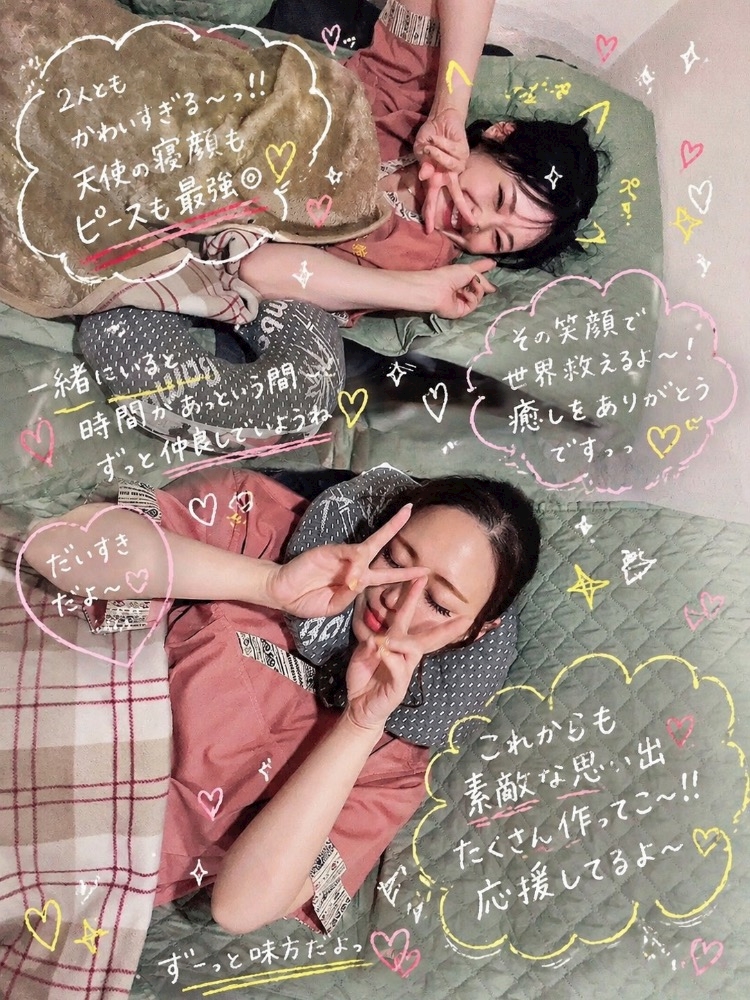 2人とも
かわいすぎる〜っ!!
天使の寝顔も
ピースも最強◎
その笑顔で
世界救えるよ〜!
癒しをありがとう
ですっっ
一緒にいると
時間があっという間
ずっと仲良しでいようね
だいすき
だよ〜♡
これからも
素敵な思い出
たくさん作ってこ〜!!
応援してるよ〜
ずーっと味方だよっ